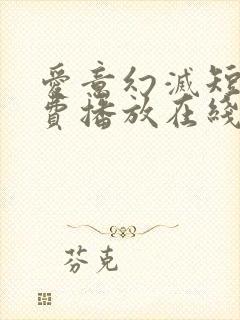 愛意幻滅短
費播放在綫
芬克